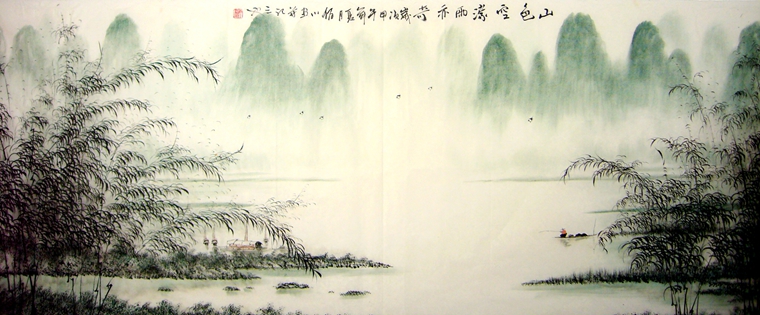 山色空濛雨亦奇歲次甲午年夏月